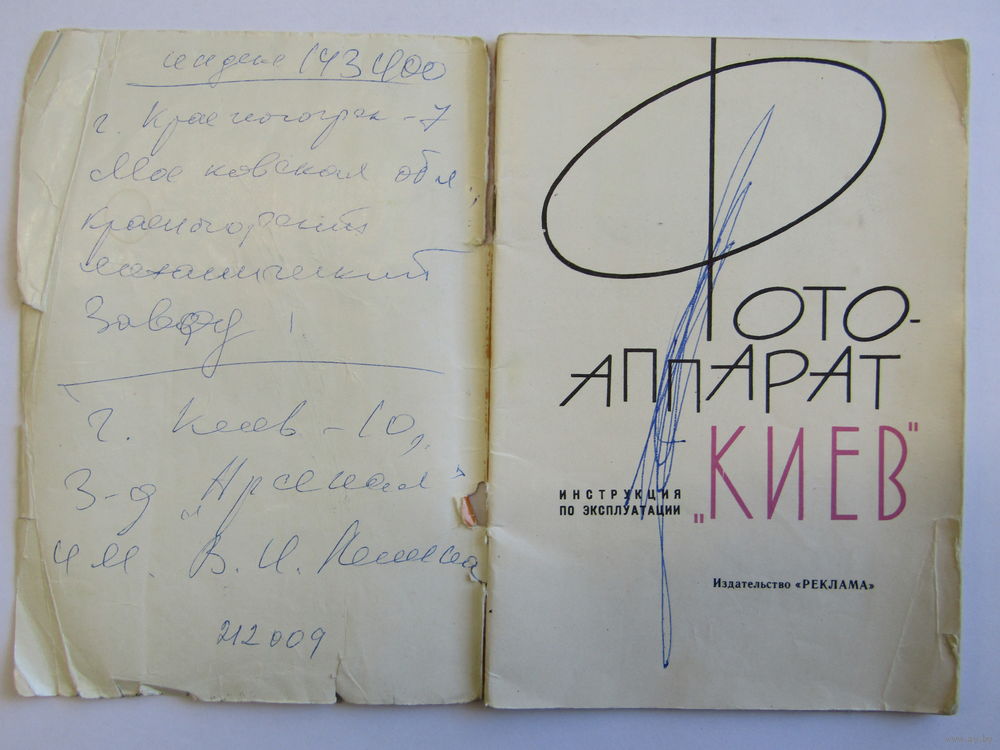 индекс 143400
г. Красногорск-7
Московская обл.,
Красногорский
механический
Заводу
г. Киев-10,
З-д „Арсенал"
им. В. И. Ленина
212009
ФОТО-
АППАРАТ
„КИЕВ"
ИНСТРУКЦИЯ
ПО ЭКСПЛУАТАЦИИ
Издательство «РЕКЛАМА»